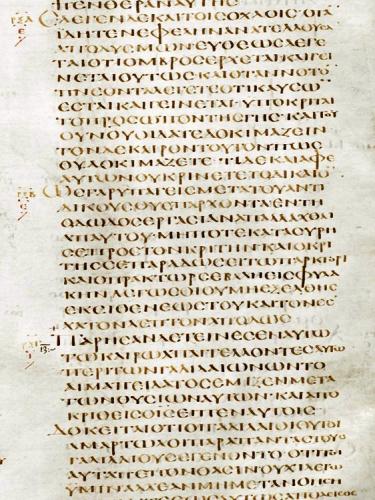 ΠΕΝΘΕΡΑΝΑΥΤΗϹ
ΕΛΕΓΕΝΔΕΚΑΙΤΟΙϹΟΧΛΟΙϹ·ΟΤΑ
ΙΔΗΤΕΝΕΦΕΛΗΝΑΝΑΤΕΛΛΟΥϹΑ
ΑΠΟΔΥϹΜΩΝΕΥΘΕΩϹΛΕΓΕ
ΤΑΙΟΤΙΟΜΒΡΟϹΕΡΧΕΤΑΙΚΑΙΓΕΙ
ΝΕΤΑΙΟΥΤΩϹΚΑΙΟΤΑΝΝΟΤΟ
ΠΝΕΟΝΤΑΛΕΓΕΤΕΟΤΙΚΑΥϹΩ
ΕϹΤΑΙΚΑΙΓΕΙΝΕΤΑΙ·ΥΠΟΚΡΙΤΑΙ
ΤΟΠΡΟϹΩΠΟΝΤΗϹΓΗϹΚΑΙΤΟΥ
ΟΥΝΟΥΟΙΔΑΤΕΔΟΚΙΜΑΖΕΙΝ
ΤΟΝΔΕΚΑΙΡΟΝΤΟΥΤΟΝΠΩϹ
ΟΥΔΟΚΙΜΑΖΕΤΕ·ΤΙΔΕΚΑΙΑΦΕ
ΑΥΤΩΝΟΥΚΡΙΝΕΤΕΤΟΔΙΚΑΙΟ
ΩϹΓΑΡΥΠΑΓΕΙϹΜΕΤΑΤΟΥΑΝΤΙ
ΔΙΚΟΥϹΟΥΕΠΑΡΧΟΝΤΑΕΝΤΗ
ΟΔΩΔΟϹΕΡΓΑϹΙΑΝΑΠΗΛΛΑΧΘΑΙ
ΑΠΑΥΤΟΥ·ΜΗΠΟΤΕΚΑΤΑϹΥΡΗ
ϹΕΠΡΟϹΤΟΝΚΡΙΤΗΝΚΑΙΟΚΡΙ
ΤΗϹϹΕΠΑΡΑΔΩϹΕΙΤΩΠΡΑΚΤΟΡΙ
ΚΑΙΟΠΡΑΚΤΩΡϹΕΒΑΛΗΕΙϹΦΥΛΑ
ΚΗΝ·ΛΕΓΩϹΟΙΟΥΜΗΕΞΕΛΘΗϹ
ΕΚΕΙΘΕΝΕΩϹΤΟΥΚΑΙΤΟΝΕϹ
ΧΑΤΟΝΛΕΠΤΟΝΑΠΟΔΩϹ
ΠΑΡΗϹΑΝΔΕΤΙΝΕϹΕΝΑΥΤΩ
ΤΩΚΑΙΡΩΑΠΑΓΓΕΛΛΟΝΤΕϹΑΥΤΩ
ΠΕΡΙΤΩΝΓΑΛΙΛΑΙΩΝΩΝΤΟ
ΑΙΜΑΠΕΙΛΑΤΟϹΕΜΙΞΕΝΜΕΤΑ
ΤΩΝΘΥϹΙΩΝΑΥΤΩΝ·ΚΑΙΑΠΟ
ΚΡΙΘΕΙϹΟΙϹΕΙΠΕΝΑΥΤΟΙϹ
ΔΟΚΕΙΤΑΙΟΤΙΟΙΓΑΛΙΛΑΙΟΙΟΥΤΟΙ
ΑΜΑΡΤΩΛΟΙΠΑΡΑΠΑΝΤΑϹΤΟΥϹ
ΓΑΛΙΛΑΙΟΥϹΕΓΕΝΟΝΤΟΟΤΙΤΟΙ
ΑΥΤΑΠΕΠΟΝΘΑϹΙΝΟΥΧΙΛΕΓΩ
ΥΜΙΝΑΛΛΕΑΝΜΗΜΕΤΑΝΟΗ